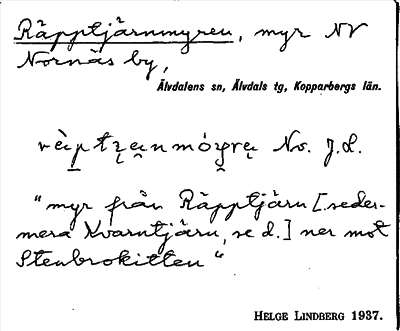 Räpptjärnmyren, myr NV
Nornäs by,
Älvdalens sn, Älvdals tg, Kopparbergs län.
No. J.L.
"myr från Räpptjärn [. seder-
mera Kvarntjärn, se d.] ner mot
Stenbrokitten"
HELGE LINDBERG 1937.